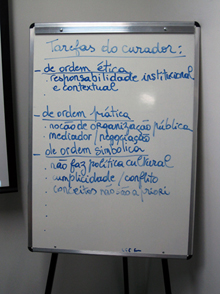 Tarefas do curador:
- de ordem ética
. responsabilidade institucional
e contextual
- de ordem prática
. noção de organização pública
. mediador/negociação
- de ordem simbólica
. não faz política cultural
. implicidade/conflito
. conceitos não-são a priori